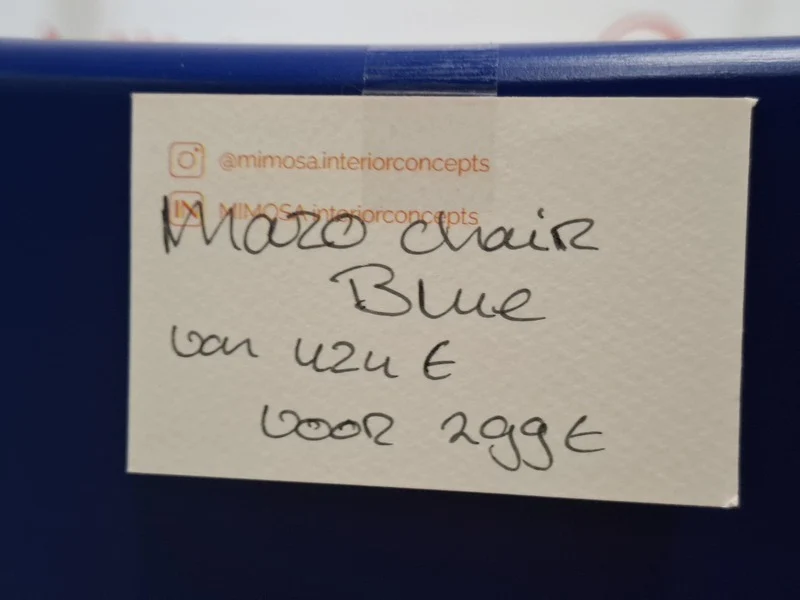 @mimosa.interiorconcepts
MIMOSA.interiorconcepts
Mazo chair
Blue
van 424 €
voor 299 €